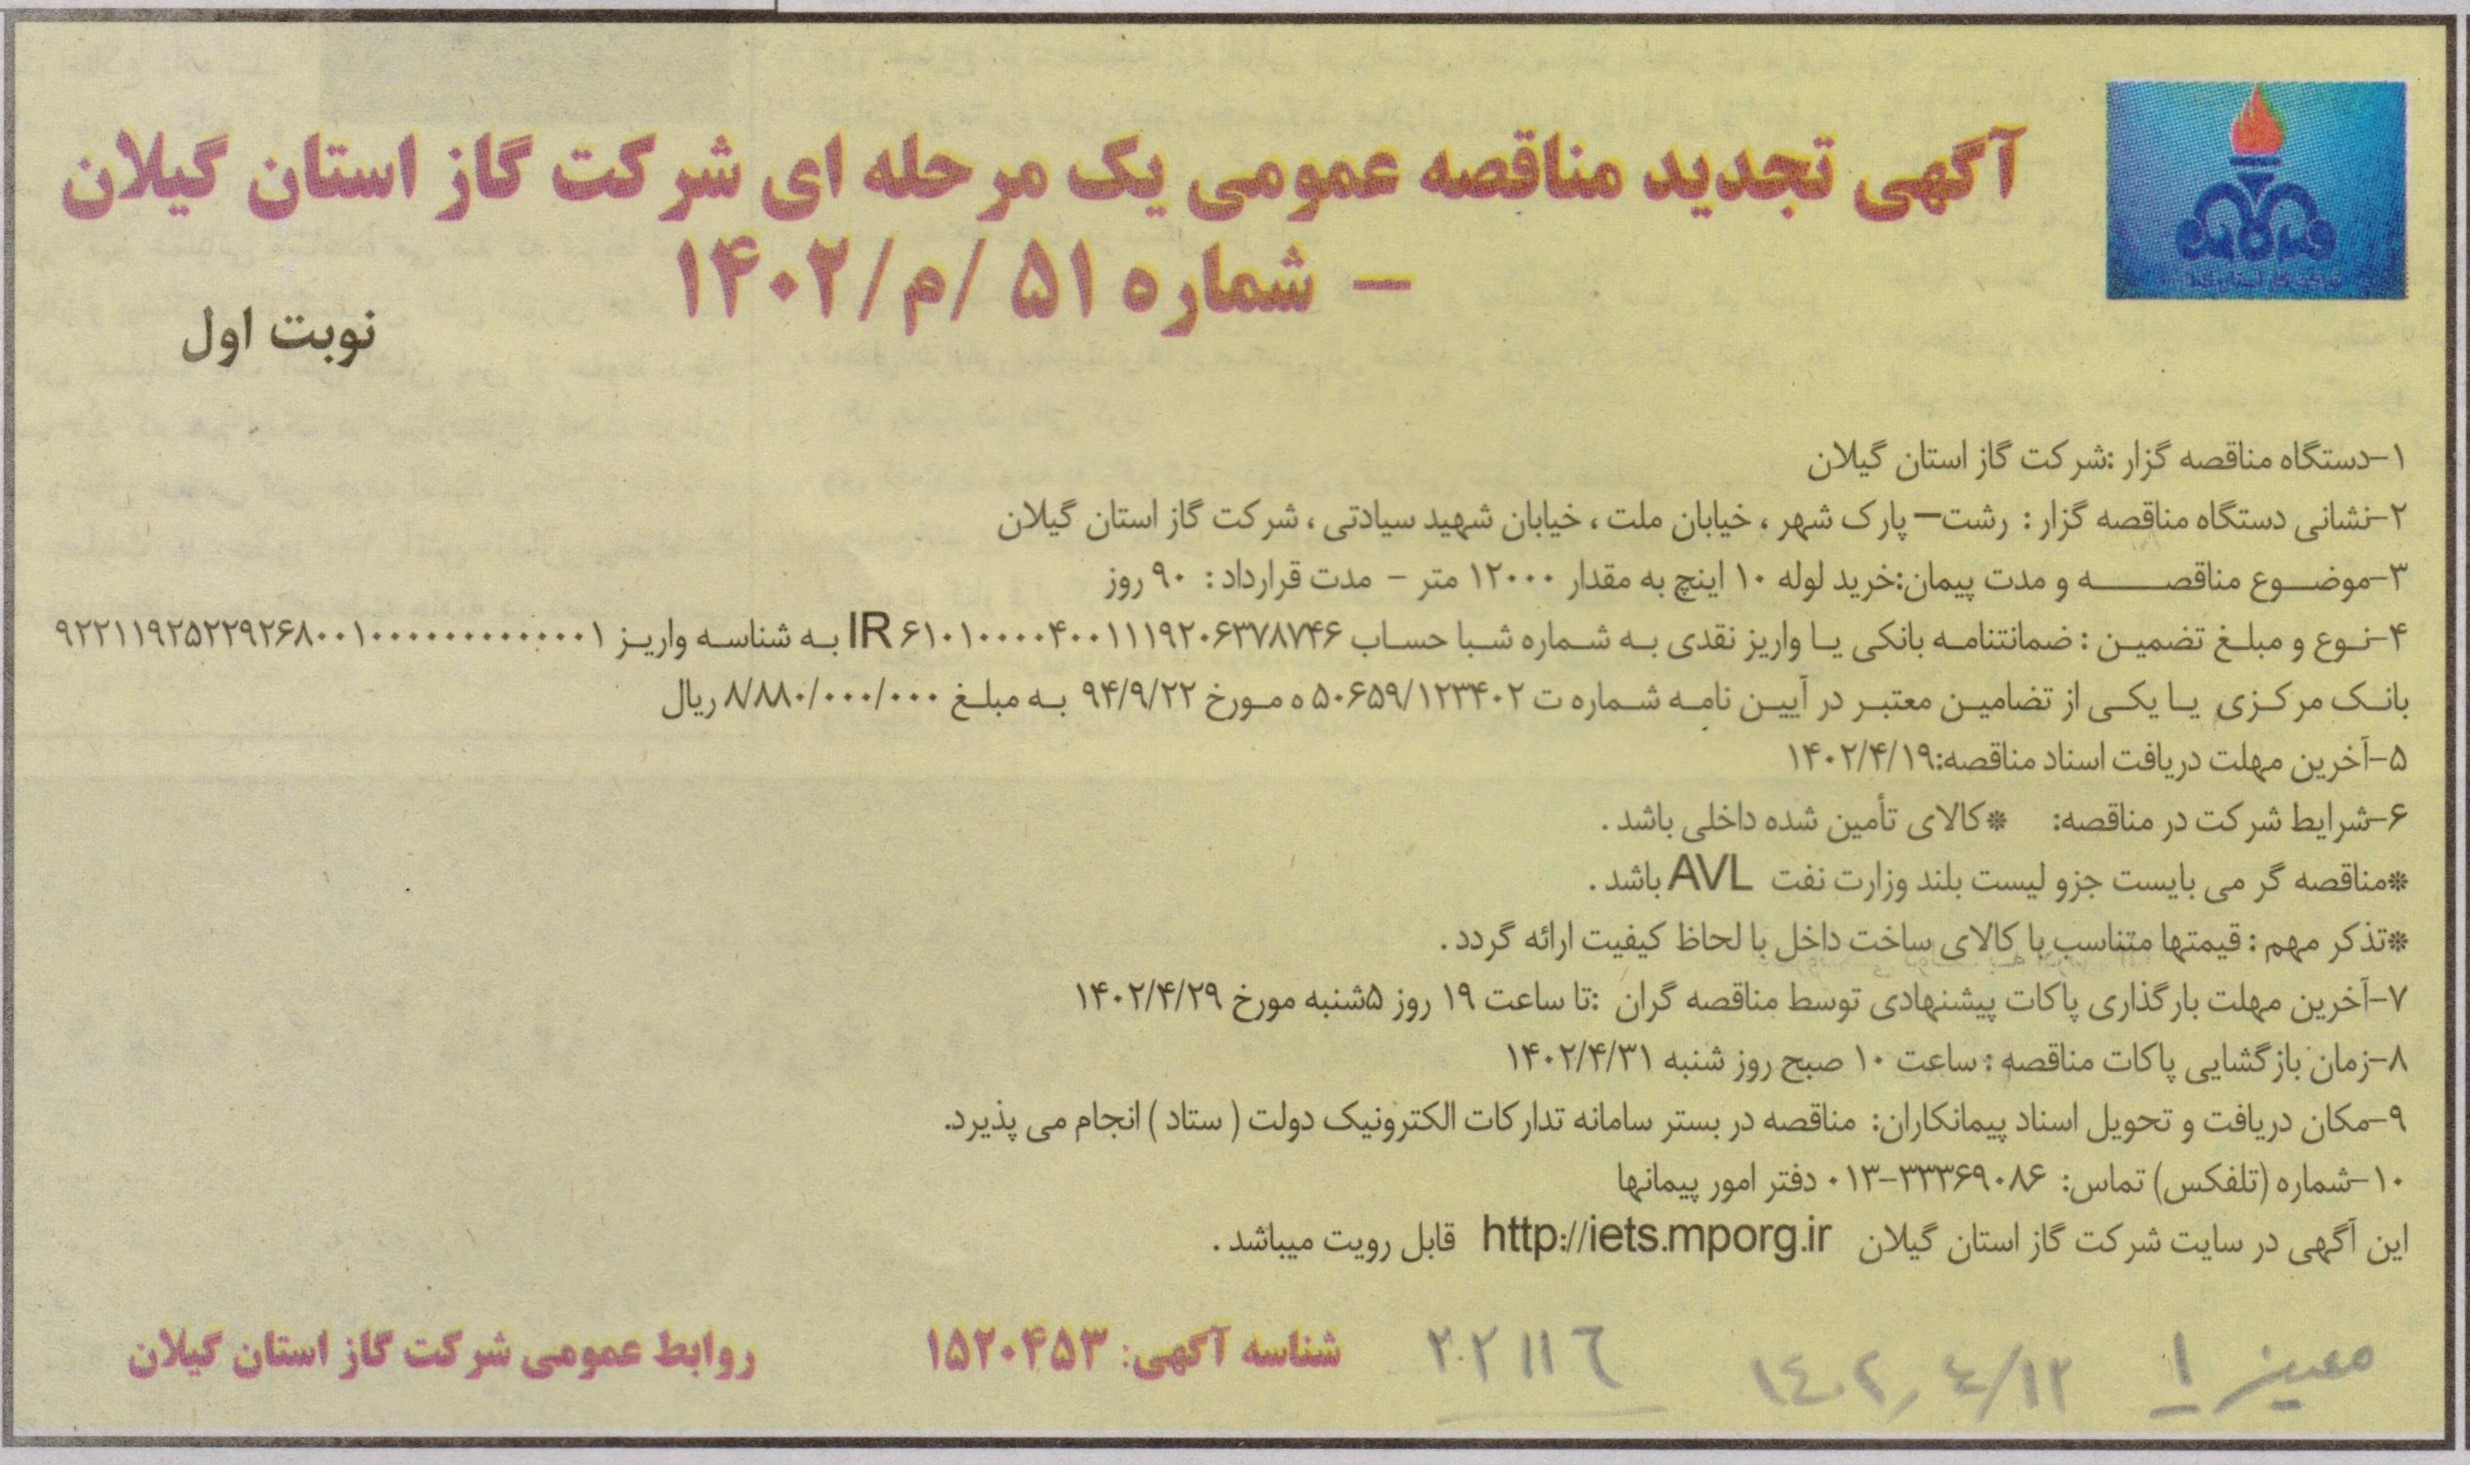 آگهی تجدید مناقصه عمومی یک مرحله ای شرکت گاز استان گیلان
– شماره ۵۱ /م/۱۴۰۲
نوبت اول
۱-دستگاه مناقصه گزار :شرکت گاز استان گیلان
۲-نشانی دستگاه مناقصه گزار : رشت– پارک شهر ، خیابان ملت ، خیابان شهید سیادتی ، شرکت گاز استان گیلان
۳-موضوع مناقصه و مدت پیمان:خرید لوله ۱۰ اینچ به مقدار ۱۲۰۰۰ متر - مدت قرارداد : ۹۰ روز
۴-نوع و مبلغ تضمین : ضمانتنامه بانکی یا واریز نقدی به شماره شبا حساب IR ۶۱۰۱۰۰۰۰۴۰۰۱۱۱۹۲۰۶۳۷۸۷۴۶ به شناسه واریز ۹۲۲۱۱۹۲۵۲۲۹۲۶۸۰۰۱۰۰۰۰۰۰۰۰۰۰۰۰۱
بانک مرکزی یا یکی از تضامین معتبر در آیین نامه شماره ت ۵۰۶۵۹/۱۲۳۴۰۲ ه مورخ ۹۴/۹/۲۲ به مبلغ ۸/۸۸۰/۰۰۰/۰۰۰ ریال
۵-آخرین مهلت دریافت اسناد مناقصه:۱۴۰۲/۴/۱۹
۶-شرایط شرکت در مناقصه: *کالای تأمین شده داخلی باشد .
*مناقصه گر می بایست جزو لیست بلند وزارت نفت AVL باشد .
*تذکر مهم : قیمتها متناسب با کالای ساخت داخل با لحاظ کیفیت ارائه گردد .
۷-آخرین مهلت بارگذاری پاکات پیشنهادی توسط مناقصه گران :تا ساعت ۱۹ روز ۵شنبه مورخ ۱۴۰۲/۴/۲۹
۸-زمان بازگشایی پاکات مناقصه : ساعت ۱۰ صبح روز شنبه ۱۴۰۲/۴/۳۱
۹-مکان دریافت و تحویل اسناد پیمانکاران: مناقصه در بستر سامانه تدارکات الکترونیک دولت ( ستاد ) انجام می پذیرد.
۱۰-شماره (تلفکس) تماس: ۳۳۳۶۹۰۸۶-۰۱۳ دفتر امور پیمانها
این آگهی در سایت شرکت گاز استان گیلان http://iets.mporg.ir قابل رویت میباشد .
۱۴۰۲/۴/۱۲ ۲۰۲۱۱۶
شناسه آگهی: ۱۵۲۰۴۵۳
روابط عمومی شرکت گاز استان گیلان